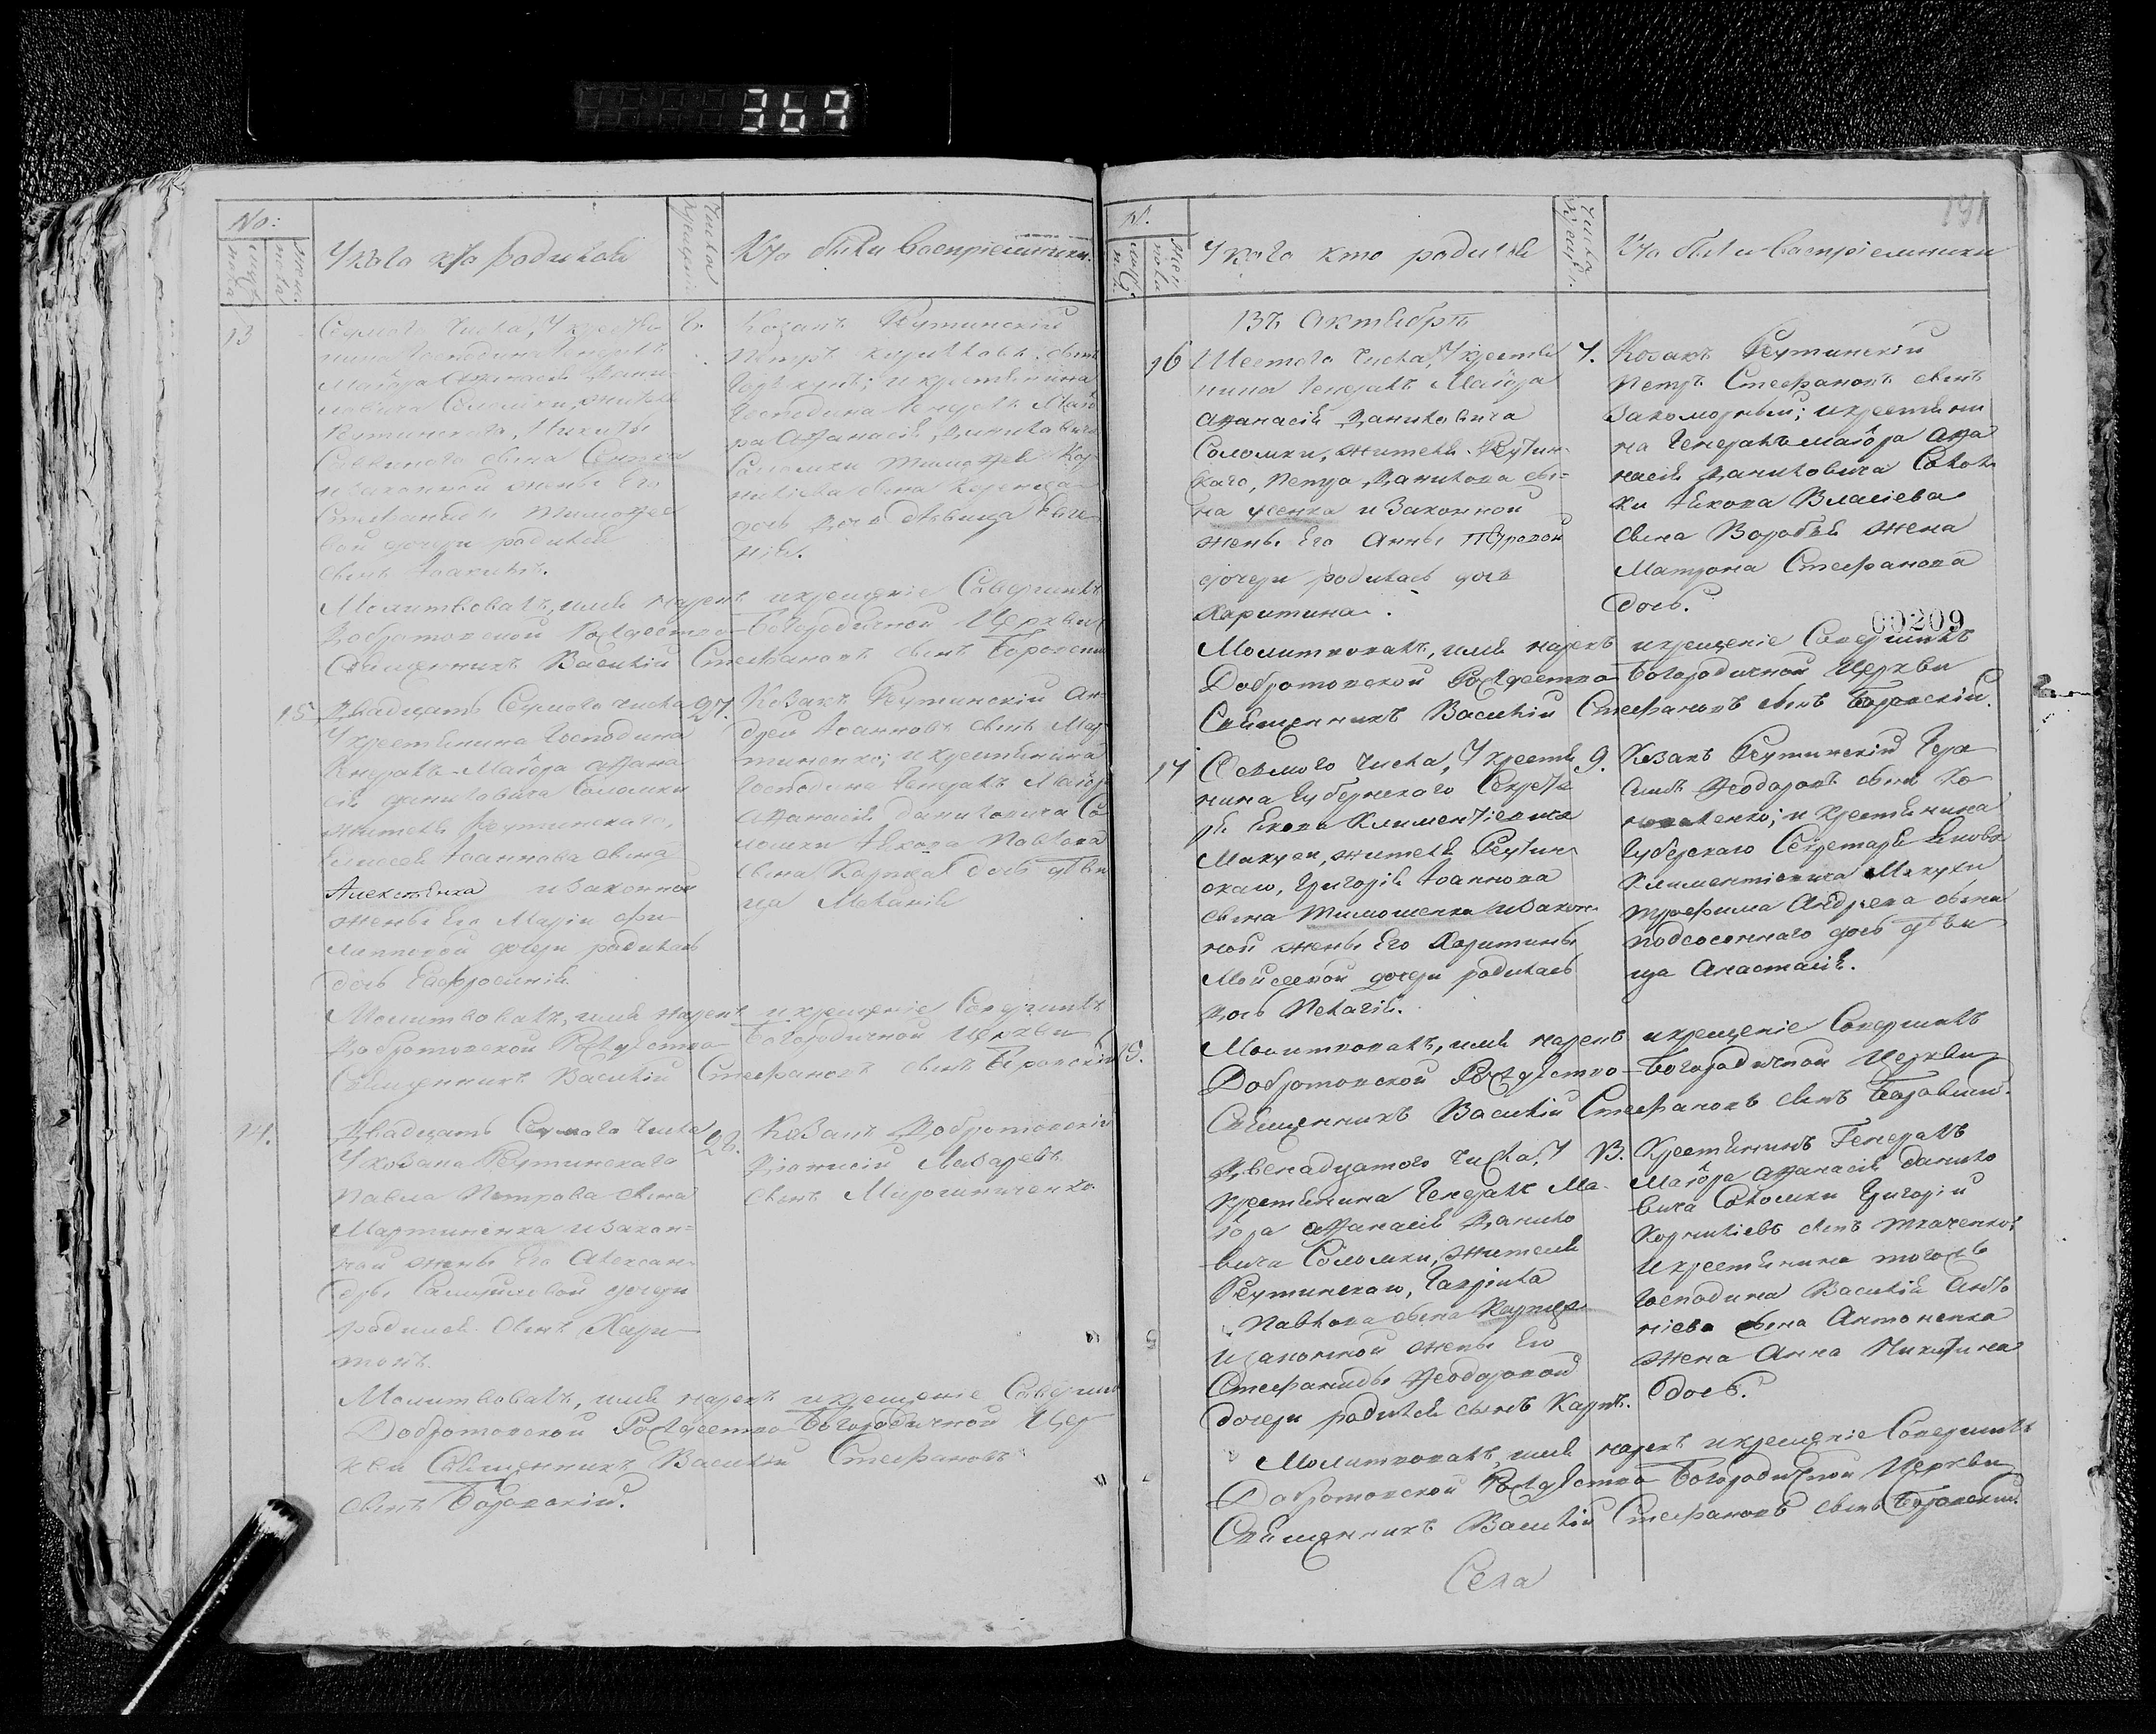 369
No:
У кого кто родились
Числа крещенія
Кто были Воспріемники.
13
Седмаго числа, У крестья
нина Господина Генералъ
Маіора Афанасія Дани
ловича Соломки, жителя
Реутинскаго, Никиты
Саввинаго сына
и законной жены Его
Стефаниды Тимофее
вой дочери родился
сынъ Іоакимъ.
8.
Козакъ Реутинскій
Петръ сынъ
и крестьянина
Господина Генералъ Маіо
ра Афанасія Даниловича
Соломки Тимофея Кор
ниліева сына
дочь дѣвица Евге
нія.
Молитвовалъ, имя нарекъ и крещеніе Совершилъ
Добротовской Рождество-Богородичной Церкви
Священникъ Василій Стефановъ сынъ Боровскій
15
Двадцать Седмаго числа
У крестьянина Господина
Генералъ-Маіора Афана
сія Даниловича Соломки
жителя Реутинскаго,
Елисея Іоаннова сына
Алексѣенка и законной
жены Его Маріи Фи-
липповой дочери родилась
дочь Евфросинія.
27.
Козакъ Реутинскій Ан-
дрей Іоанновъ сынъ Мар
тиненко; и крестьянина
Господина Генералъ Маіора
Афанасія Даниловича Со
ломки Іякова Павлова
сына Карпца дочь дѣви
ца Меланія
Молитвовалъ, имя нарекъ и крещеніе Совершилъ
Добротовской Рождество-Богородичной Церкви
Священникъ Василій Стефановъ сынъ Боровскій
14.
Двадцать Седмаго числа
У козака Реутинскаго
Павла Петрова сына
Мартиненка и закон-
ной жены Его Алексан-
дры дочери
родился сынъ Хари-
тонъ.
28.
Козакъ Добротовскій
Діонисій Лазаревъ
сынъ Мирогинниченко
Молитвовалъ, имя нарекъ и крещеніе Соверши
Добротовской Рождество-Богородичной Цер
кви Священникъ Василій Стефановъ
сынъ Боровскій.
191
№.
У кого кто родился
Числ. Крещ.
Кто были Воспріемники
Въ Октябрѣ
16
Шестаго числа, У крестья
нина Генералъ Маіора
Афанасія Даниловича
Соломки, жителя Реутин-
скаго, Петра Данилова сы-
на Усенка и законной
жены Его Анны Петровой
дочери родилась дочь
Харитина.
7.
Козакъ Реутинскій
Петръ Стефановъ сынъ
Закоморный; и крестьяни
на Генералъ маіора Афа
насія Даниловича Солом
ки Іякова Власіева
сына Воробья жена
Матрона Стефанова
дочь.
00209
Молитвовалъ, имя нарекъ и крещеніе Совершилъ
Добротовской Рождество-Богородичной Церкви
Священникъ Василій Стефановъ сынъ Боровскій.
17
Седмого числа, У крестья
нина Губернскаго Секрета
ря Якова Климентіевича
Макухи, жителя Реутин
скаго, Григорія Іоаннова
сына Тимошенка и закон-
ной жены Его Харитины
Мойсеевой дочери родилась
дочь Пелагія.
9.
Козакъ Реутинскій Гера
симъ Ѳеодоровъ сынъ Ко
и крестьянина
Губернскаго Секретаря Якова
Климентіевича Макухи
Трофима Андреева сына
Подсосоннаго дочь дѣви
ца Анастасія.
Молитвовалъ, имя нарекъ и крещеніе Совершилъ
Добротовской Рождество-Богородичной Церкви
Священникъ Василій Стефановъ сынъ Боровскій.
15.
Двенадцатого числа, У
крестьянина Генералъ Ма-
іора Афанасія Данило
вича Соломки, жителя
Реутинскаго, Гавріила
Павлова сына Карпца
и законной жены Его
Стефаниды Ѳеодоровой
дочери родился сынъ Карпъ.
13.
Крестьянинъ Генералъ
Маіора Афанасія Данило
вича Соломки Григорій
Корниліевъ сынъ Ткаченко;
и крестьянина тогожъ
Господина Василія Анто
ніева сына Антоненка
жена Анна Никитина
дочь.
Молитвовалъ, имя нарекъ и крещеніе Совершилъ
Добротовской Рождество-Богородичной Церкви
Священникъ Василій Стефановъ сынъ Боровскій
Села